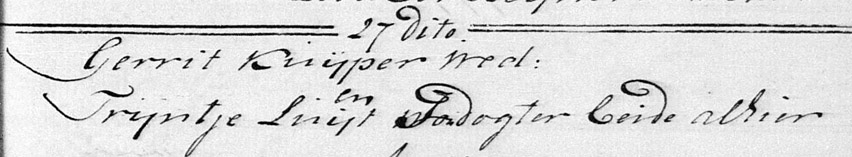 27 dito.
Gerrit Kuijper Wed:
en
Trijntje Luijt Jodogter beide alhier